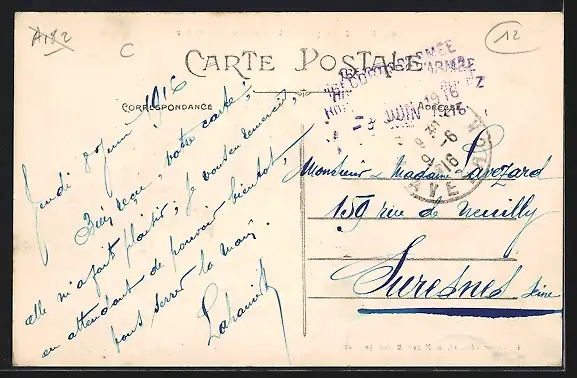 A122
C
12
CARTE POSTALE
CORRESPONDANCE
ADRESSE
Jeudi 8 Juin 1916
Bien reçu, votre carte,
elle m'a fait plaisir, je vous en remercie,
en attendant de pouvoir bientôt,
vous serrer la main.
CORPS D'ARMÉE
JUIN 1916
9-6
16
AVE
Monsieur & Madame Pavezard
159 rue de Neuilly
Suresnes
Seine